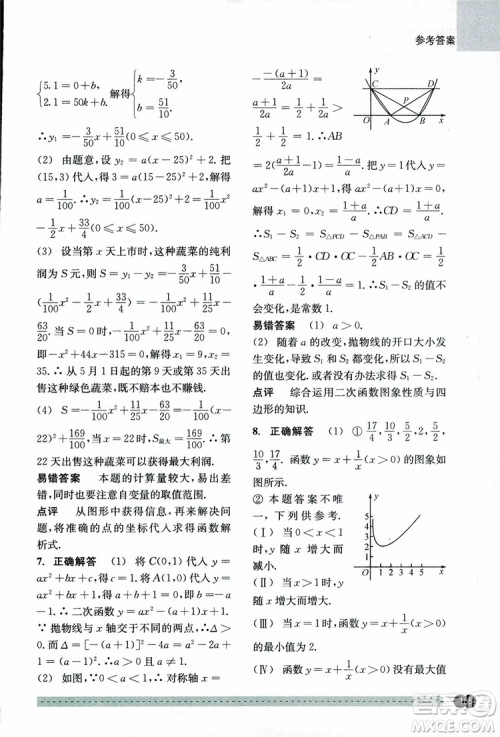 参考答案
{5.1=0+b, 解得{k=-3/50, b=51/10.
∴y₁=-3/50x+51/10(0≤x≤0).
(2) 由题意,设y₂=a(x-25)²+2.把
(15,3)代入,得3=a(15-25)²+2.解得
a=1/100.∴y₂=1/100(x-25)²+2=1/100x²
-1/2x+33/4(0≤x≤0).
(3) 设第x天上市时,这种蔬菜的纯利
润为S元,则S=y₁-y₂=-3/50x+51/10-
(1/100x²-1/2x+33/4)=-1/100x²+11/25x-
63/20.当S=0时,-1/100x²+11/25x-63/20=0.
即x²-44x+315=0.解得x₁=9,x₂=
35.∴从5月1日起的第9天或第35天
出售绿色蔬菜,既不赔本也不赚钱.
(4) S=-1/100x²+11/25x-63/20=-1/100(x-
22)²+169/100.当x=22时,S最大=169/100.∴第
22天出售这种蔬菜可获得最大利润.
易错答案 本题的计算量较大,易出差
错,还应注意自变量的取值范围.
点评 从图形中获取信息,将问题转
化成已知点的坐标代入求得函数解
析式.
7. 正确解答 (1) 将C(0,1)代入y=
ax²+bx+c,得c=1.将A(1,0)代入y=
ax²+bx+1,得a+b=-1.∴b=-(a
+1).∴二次函数y=ax²-(a+1)x+1.
∵抛物线与x轴交于不同的两点,∴Δ>
0.∴Δ=[-(a+1)]²-4a=a²-2a+1
=(a-1)²>0.∴a≠1且a>0.
(2) 不会变化.∵对称轴x=
--(a+1)/2a=
a+1/2a=1/2+
1/2a>1.∴AB
=2(1+a/2a-1)=1-a/a.把y=1代入y=
ax²-(a+1)x+1,得x₁=0,x₂=
1+a/a.∴CD=1+a/a.
∴S₁-S₂=S△PCD-S△PAB=S△ACD-
S△ABC=1/2·CD·OC-1/2·AB·OC=1/2
·1+a/a-1/2·1-a/a=1.∴S₁-S₂的值不
会变化,是常数1.
易错答案 (1) a>0.
(2) 随着a的改变,抛物线的开口大小
发生变化,导致S₁和S₂也不断发生变
化.∴没有办法求出S₁-S₂的值.
点评 综合运用二次函数图象性质与四
边形的知识.
8. 正确解答 (1) ①17/4,10/3,5/2,2,5/2,
10/3,17/4. 函数y=x+1/x(x>0)的图象如
图所示.
② 本题答案不唯
一,下列供参考.
(Ⅰ) 当0<x<1
时,y随x增大而
减小.
(Ⅱ) 当x>1时,y
随x增大而增大.
(Ⅲ) 当x=1时,函数y=x+1/x(x>0)
的最小值为2.
(Ⅳ) 函数y=x+1/x(x>0)没有最大值